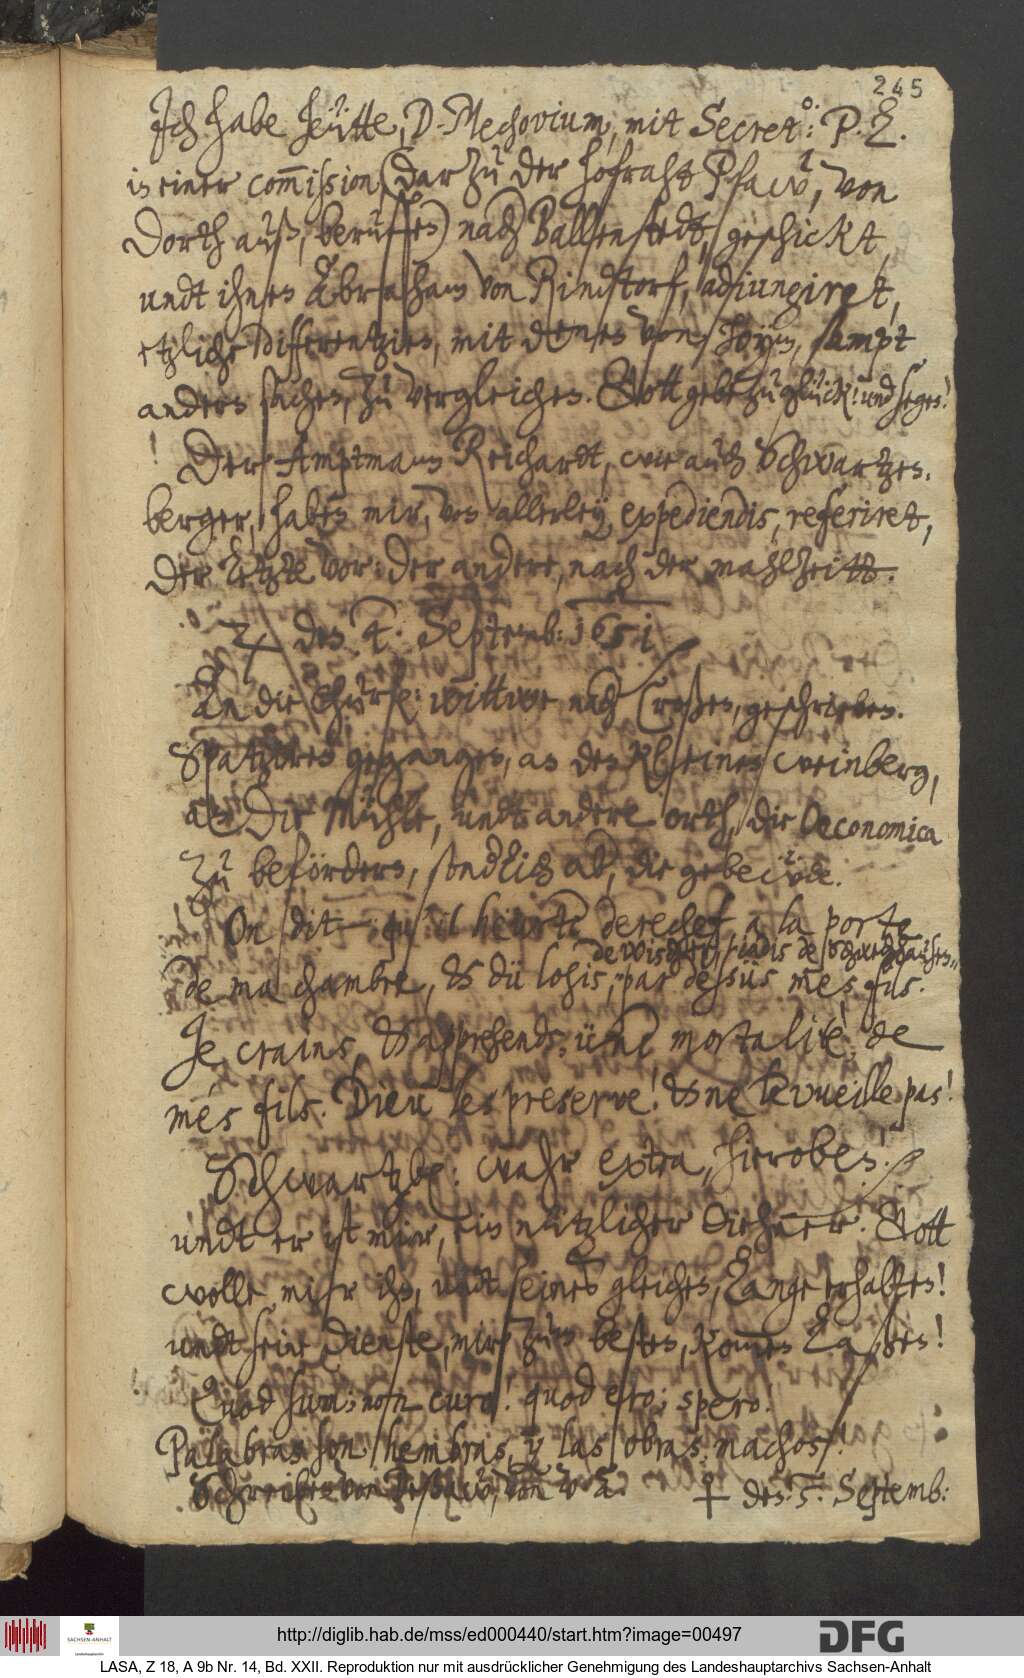 245
Ich habe heütte, D. Mechovium, mit Secret.o: P. L.
in einer commission, (dar zu der hofraht Pfaw, von
dorth auß, beruffen) nach Ballenstedt, geschickt,
undt ihnen Abraham von Rindtorf, adjungiret,
etzliche differentzien, mit denen von Hoym, sampt
andern sachen, zu vergleichen. Gott gebe zu glück! und segen!
Der Amptmann Reichardt, wie auch Schwartzen,
berger, haben mir, von allerley, expediendis, referiret,
der letzte vor: der andere, nach der mahlzeitt.
♃ den 4. Septemb: 1651
An die Churf: wittwe nach Croßen, geschrieben.
Spatziren gegangen, an den kleinen weinberg,
an die Mühle, undt andere orth, die Oeconomica
zu befördern, sonderlich ab, die gebeüde.
On dit, qu'il heürte derechef, a la porte
de Wischer, jadis de Schwechhausen,,
de ma chambre, & dü logis, par dessüs mes fils.
Je crains, & apprehends, üne mortalitè, de
mes fils. Dieu les preserve! & ne le vueille pas!
Schwartzbe: wahr extra, hieroben!
undt er ist mir, ein nützlicher diehner. Gott
wolle mir ihn, undt seines gleichen, lange erhalten!
undt seine dienste, mir zum besten, kommen laßen!
Quod sum; non curo! quod ero; spero!
Palabras son hembras, y las obras machos!
Schreiben von Deßaw, von
♀ den 5. Septemb:
http://diglib.hab.de/mss/ed000440/start.htm?image=00497
SACHSEN-ANHALT
DFG
LASA, Z 18, A 9b Nr. 14, Bd. XXII. Reproduktion nur mit ausdrücklicher Genehmigung des Landeshauptarchivs Sachsen-Anhalt